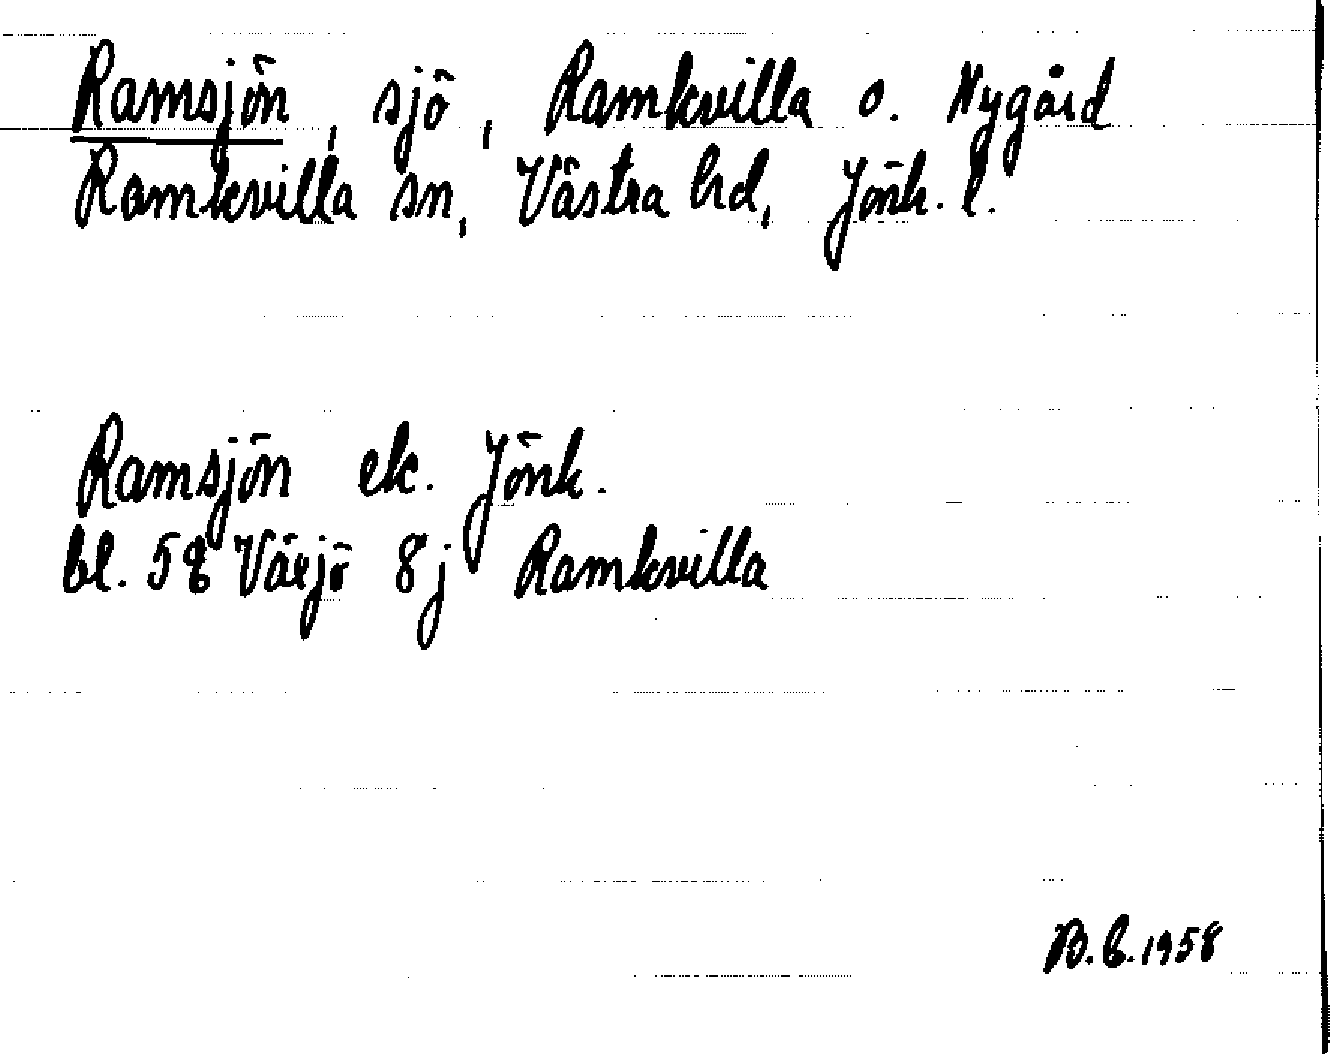 Ramsjön, sjö, Ramkvilla o. Nygård
Ramkvilla sn, Västra hd, Jönk. l.
Ramsjön ek. Jönk.
bl. 5E Växjö 8j Ramkvilla
B.E. 1958